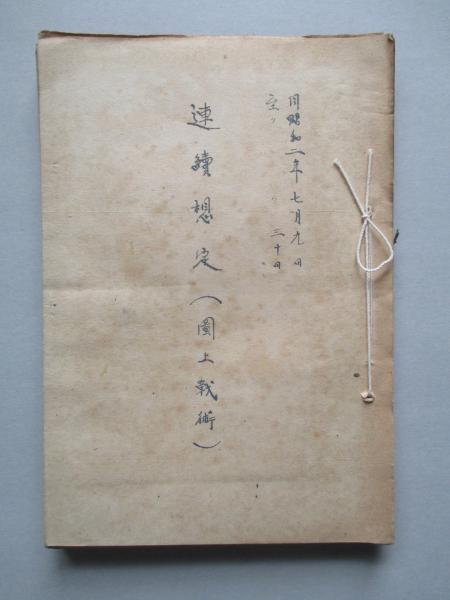 自昭和二年七月九日
至〃 〃 三十日
連續想定(圖上戦術)